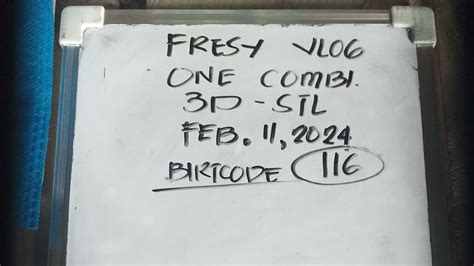 FRESY VLOG
ONE COMBI.
3D - STL
FEB. 11, 2024
BIRTCODE 116